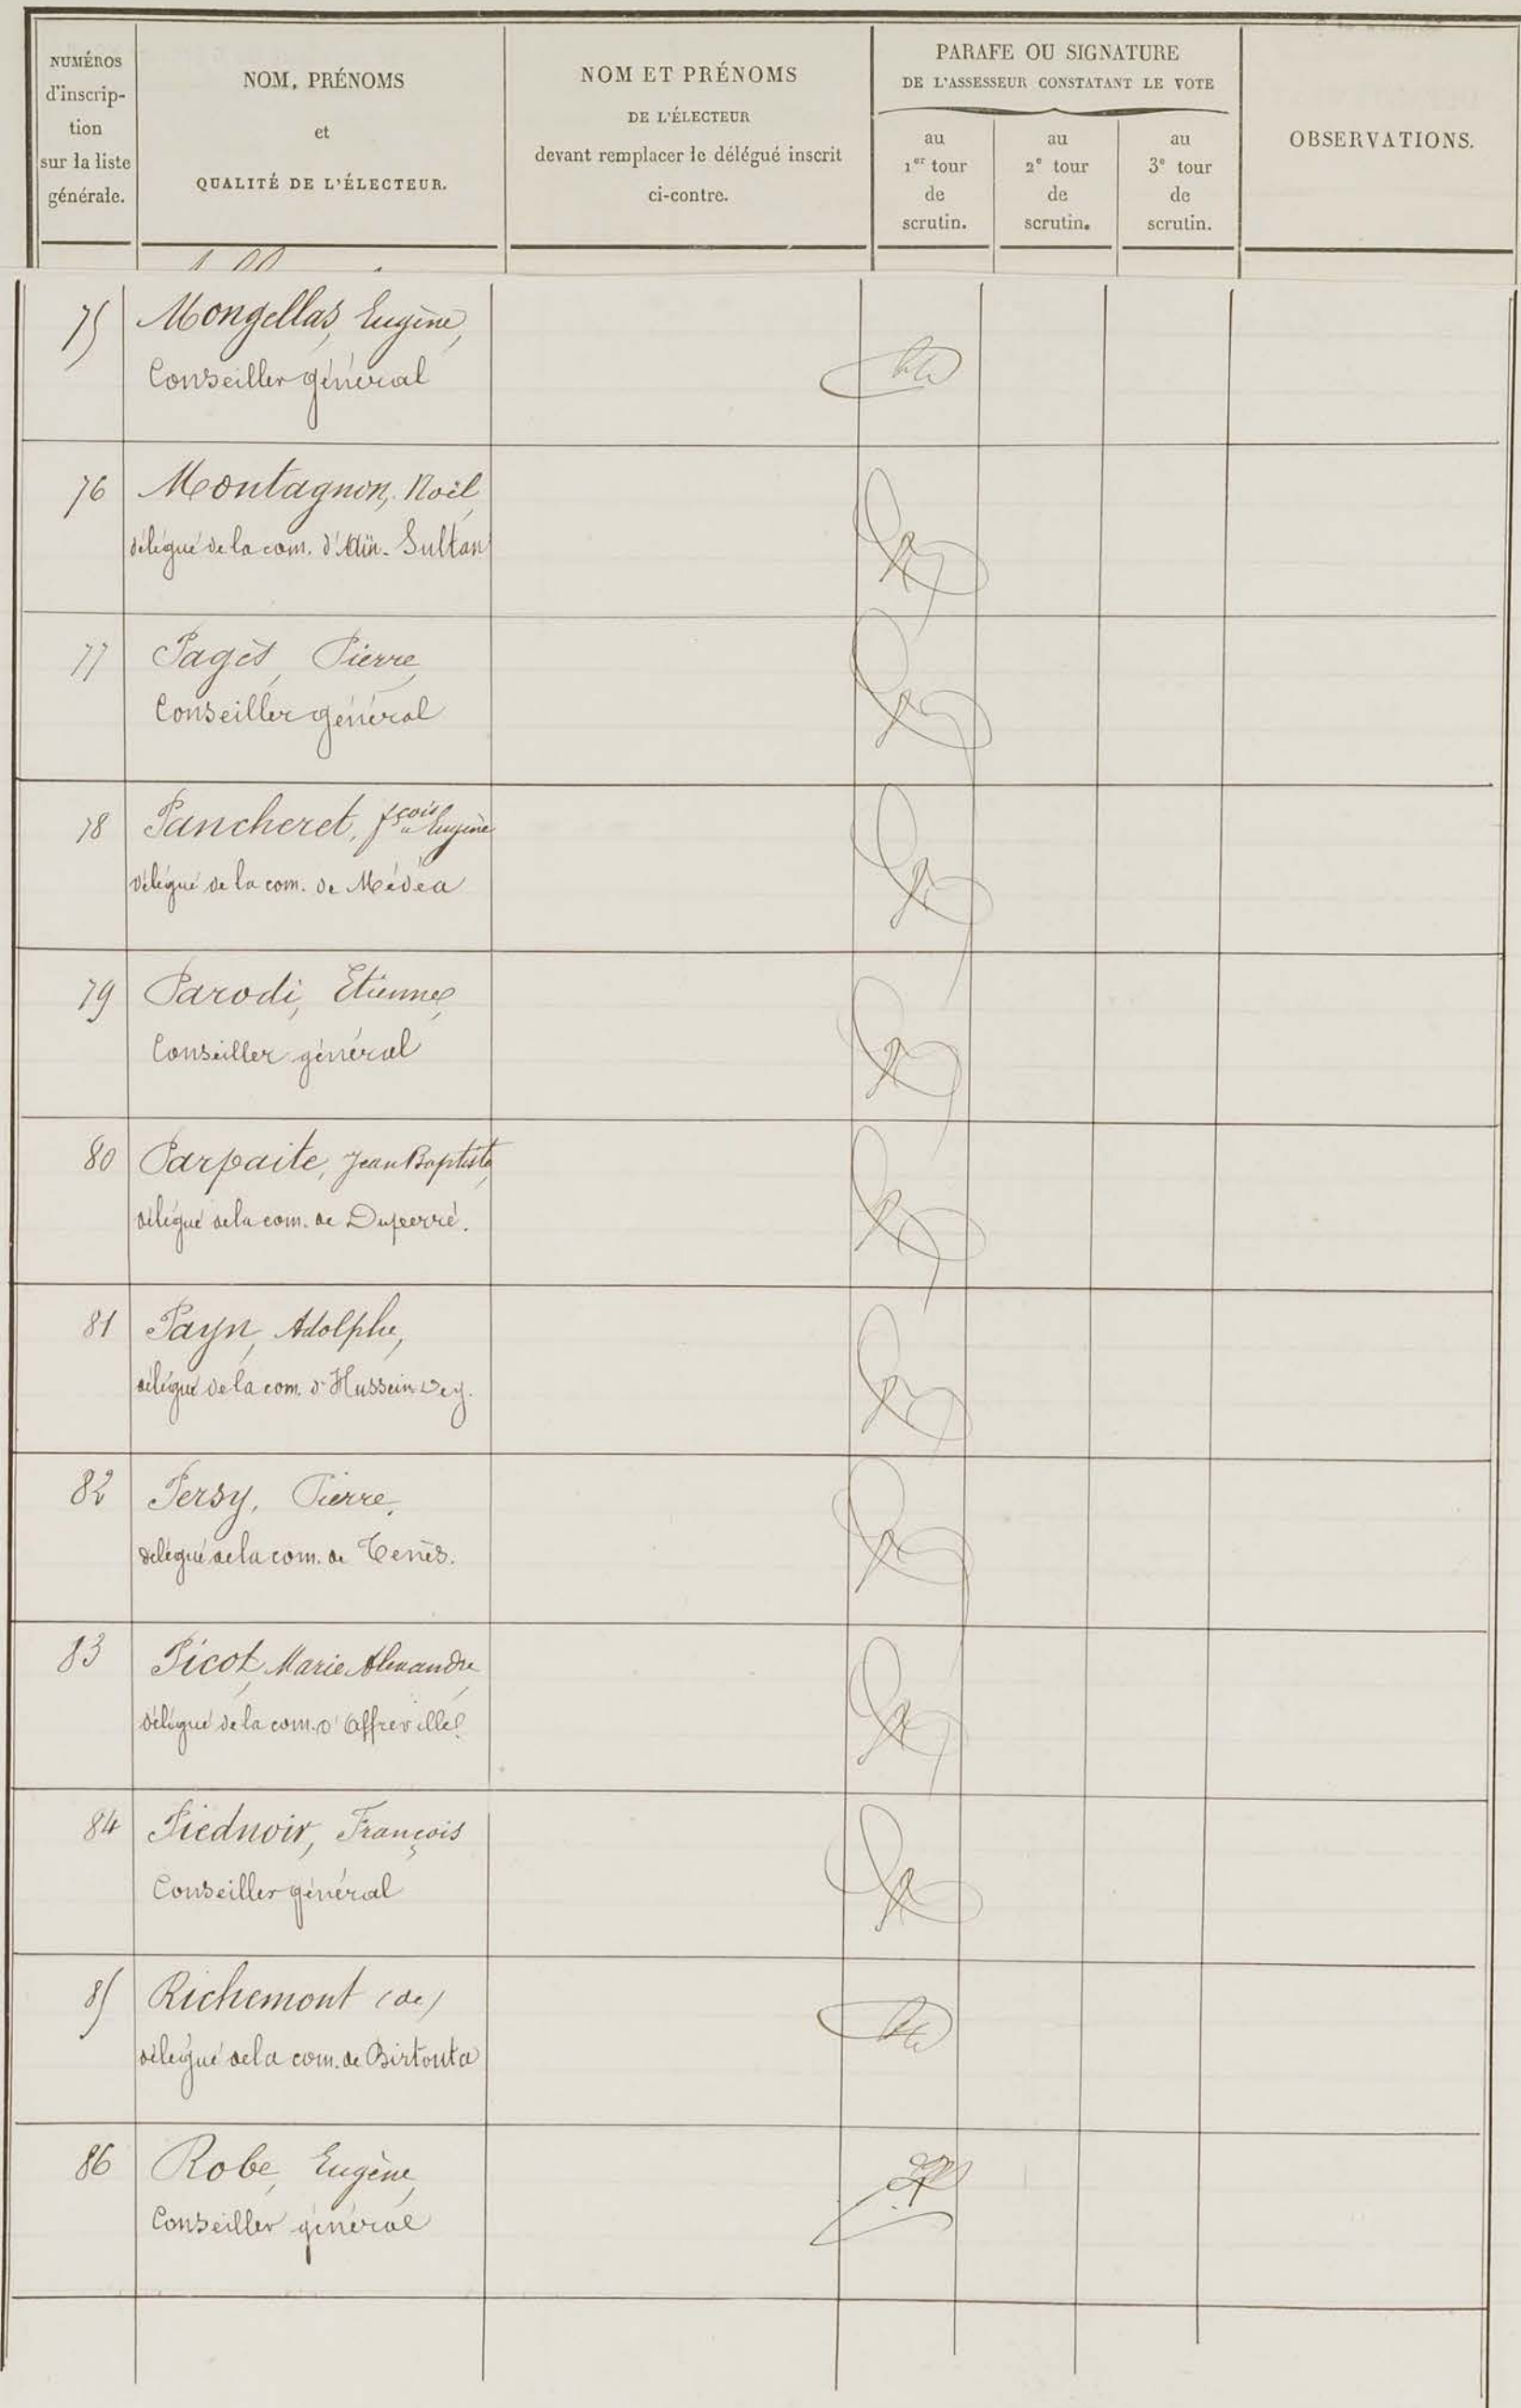 NUMÉROS
d'inscrip-
tion
sur la liste
générale.
NOM, PRÉNOMS
et
QUALITÉ DE L'ÉLECTEUR.
NOM ET PRÉNOMS
DE L'ÉLECTEUR
devant remplacer le délégué inscrit
ci-contre.
PARAFE OU SIGNATURE
DE L'ASSESSEUR CONSTATANT LE VOTE
au
1er tour
de
scrutin.
au
2e tour
de
scrutin.
au
3e tour
de
scrutin.
OBSERVATIONS.
75 Mongellas, Eugène,
Conseiller général
76 Montagnon, Noël,
délégué de la com. d'Aïn-Sultan
77 Pagès, Pierre,
Conseiller général
78 Pancheret, fçois Eugène
délégué de la com. de Médéa
79 Parodi, Etienne,
Conseiller général
80 Parfaite, Jean Baptiste,
délégué de la com. de Duperré.
81 Payn, Adolphe,
délégué de la com. d'Hussein-Dey.
82 Persy, Pierre,
délégué de la com. de Tenès.
83 Picot, Marie Alexandre,
délégué de la com. d'Affreville
84 Piednoir, François
Conseiller général
85 Richemont (de)
délégué de la com. de Birtouta
86 Robe, Eugène,
Conseiller général